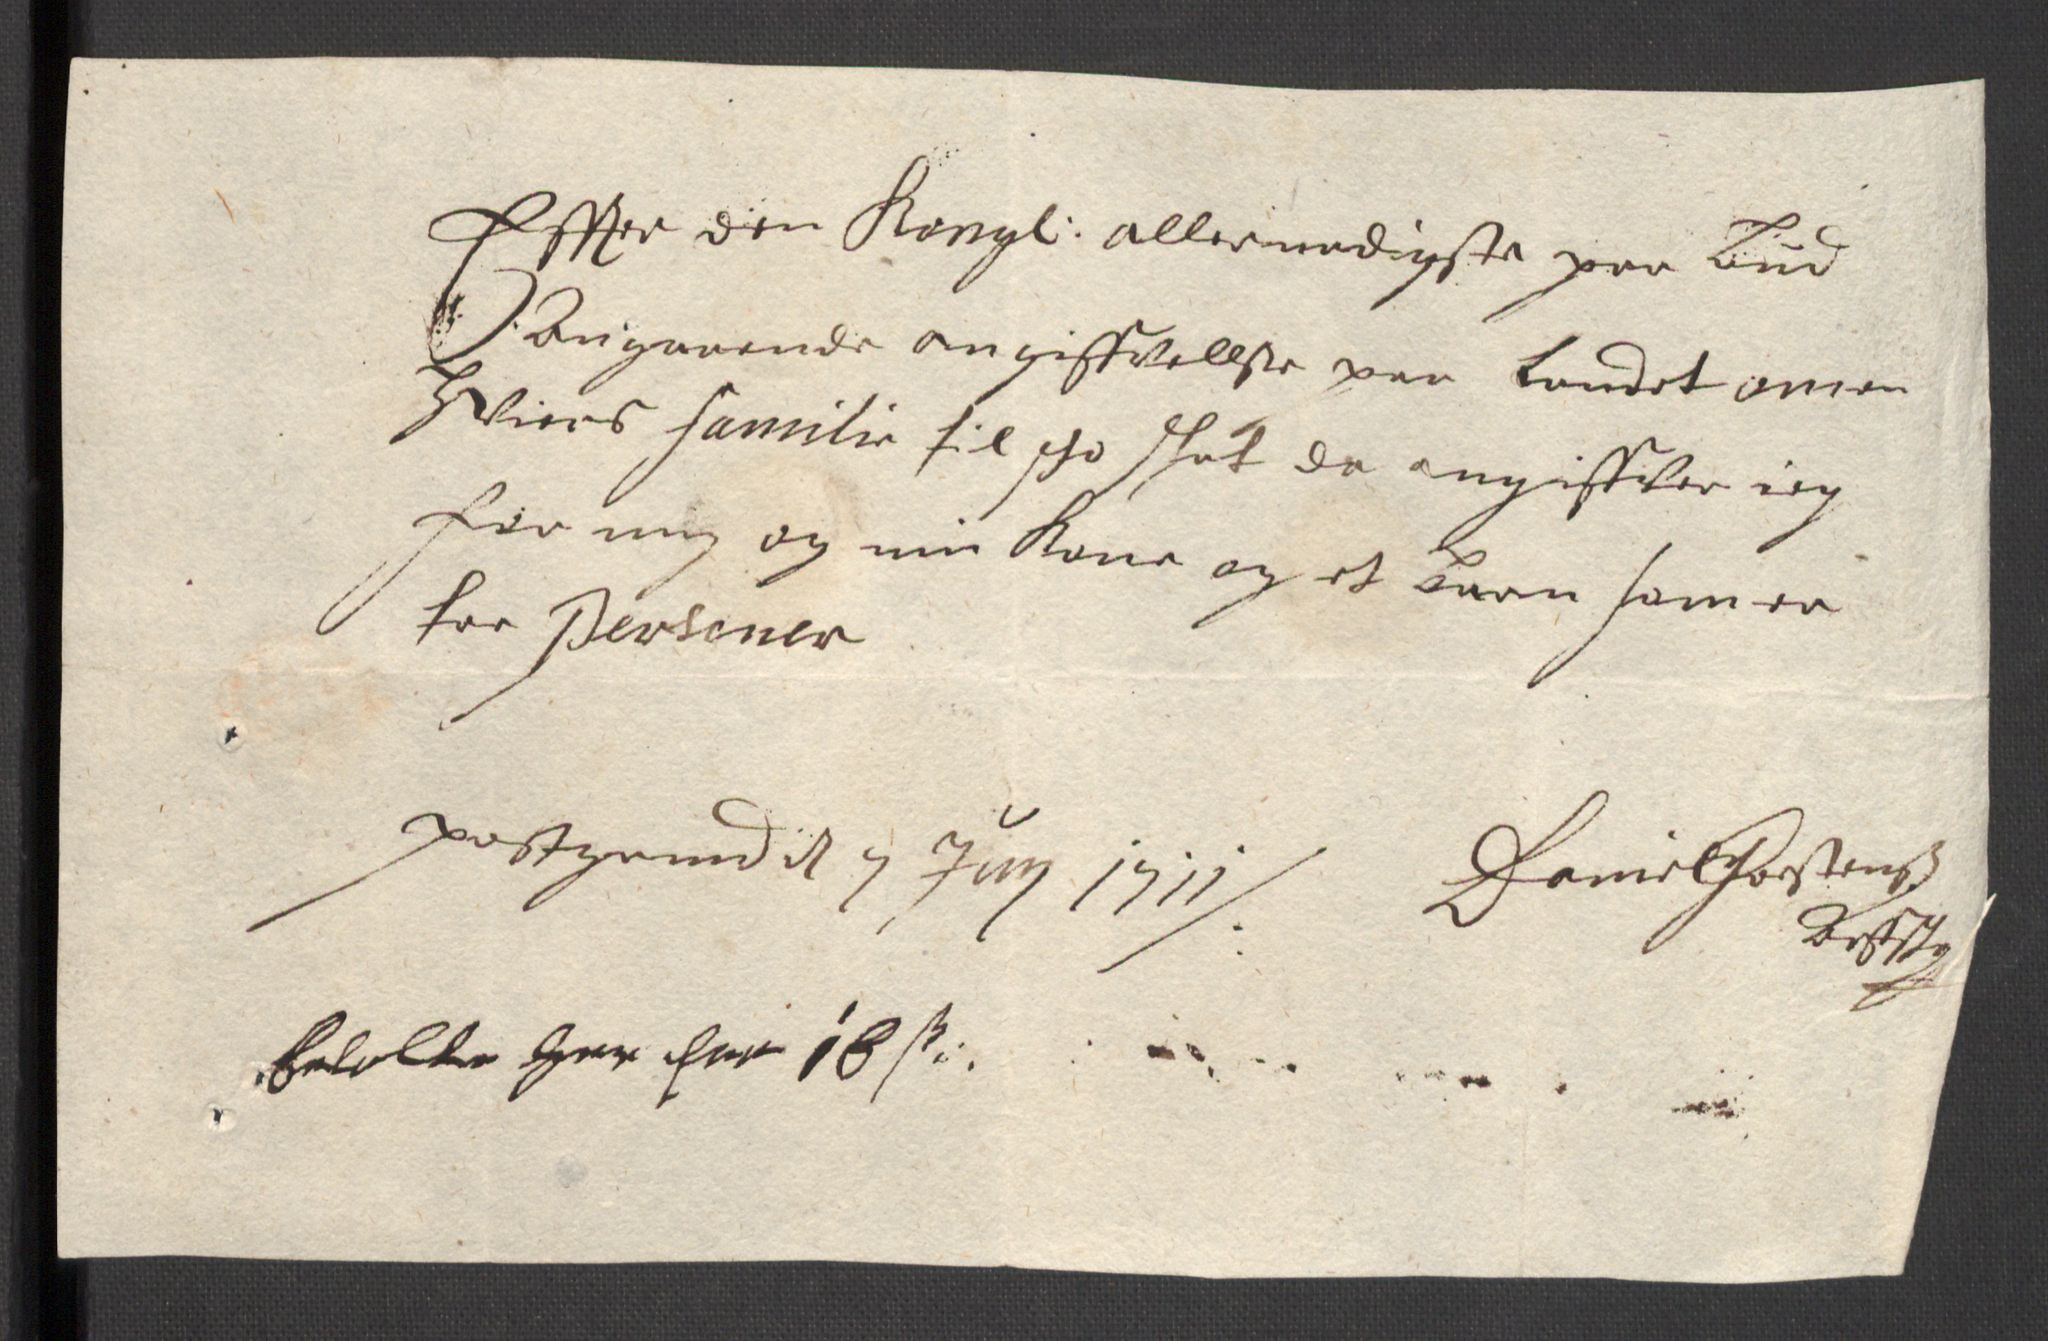 Effter den Kongl: allernadigste paa bud
Angaaende angifftvellsse paa Landet om en
hViers familie til sko skat da angiffver ieg
for mig og min Kone og et barn som er
tre Personer
postgrund d 7 Juny 1711
Daniel Torstens
betalte her for 18 s: